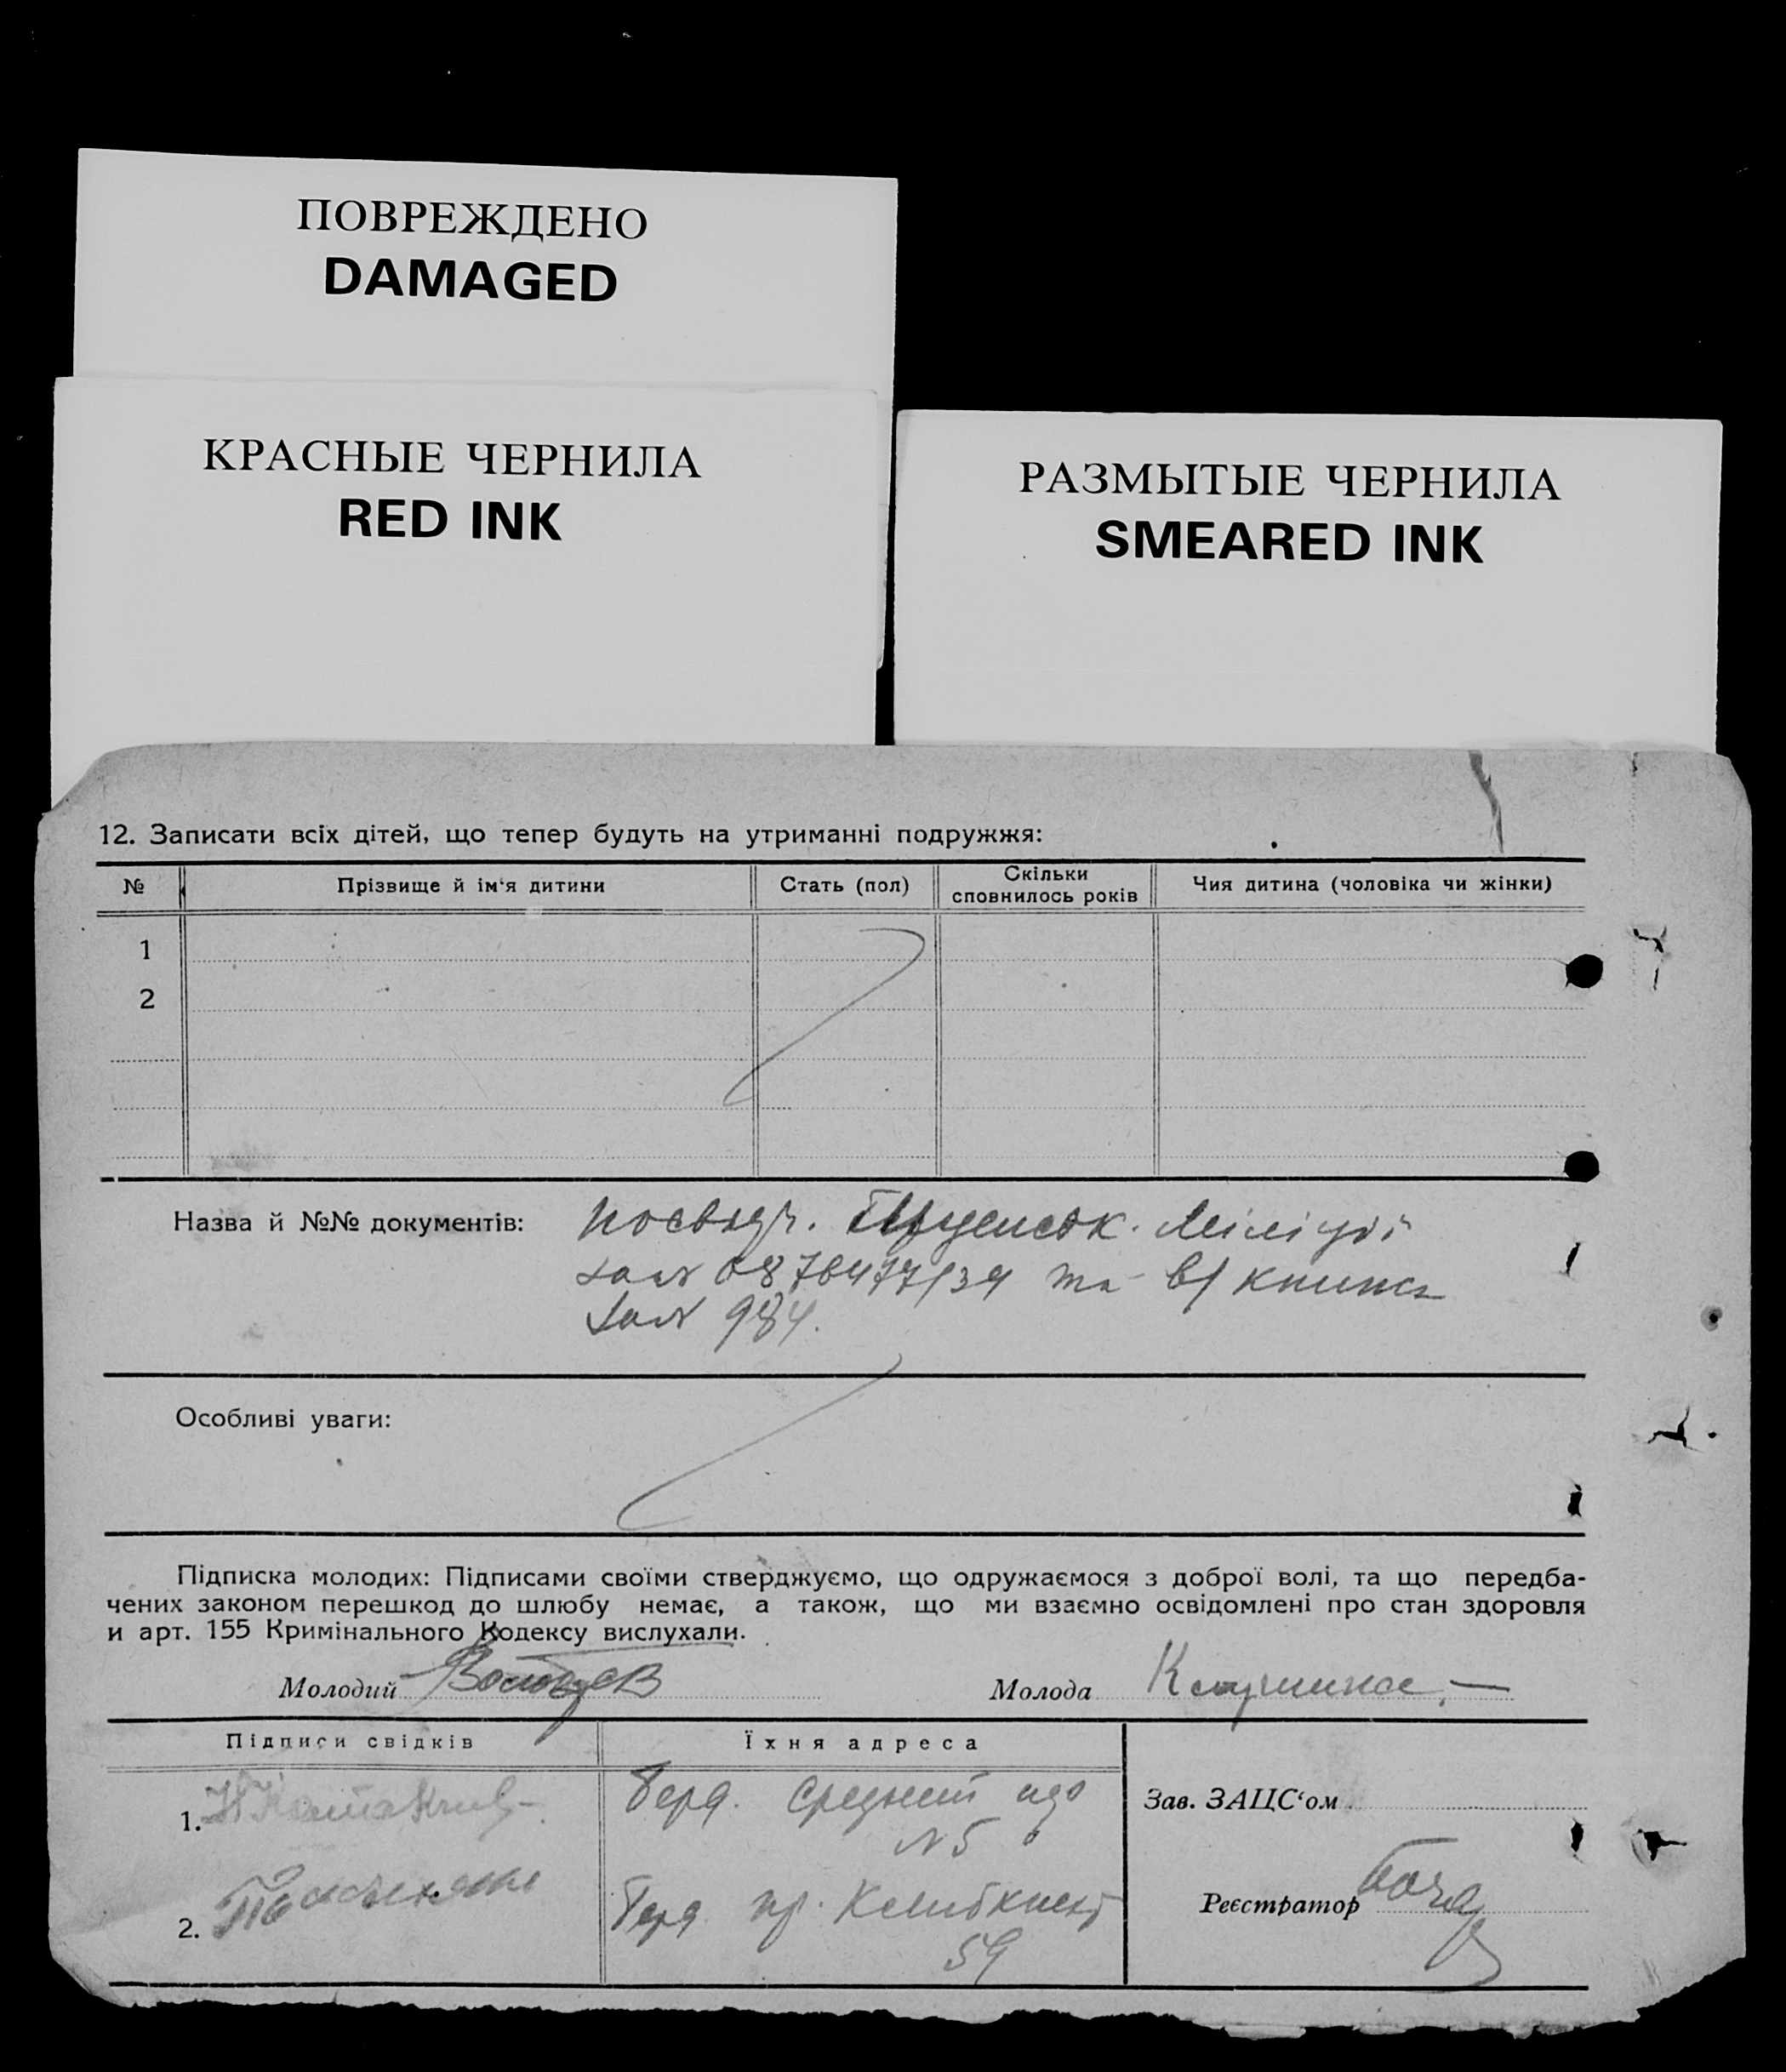 ПОВРЕЖДЕНО
DAMAGED
КРАСНЫЕ ЧЕРНИЛА
RED INK
РАЗМЫТЫЕ ЧЕРНИЛА
SMEARED INK
12. Записати всіх дітей, що тепер будуть на утриманні подружжя:
№ Прізвище й ім‘я дитини Стать (пол) Скільки сповнилось років Чия дитина (чоловіка чи жінки)
1
2
Назва й №№ документів: Міліції
та в/книжка
984.
Особливі уваги:
Підписка молодих: Підписами своїми стверджуємо, що одружаємося з доброї волі, та що передба-
чених законом перешкод до шлюбу немає, а також, що ми взаємно освідомлені про стан здоровля
и арт. 155 Кримінального Кодексу вислухали.
Молодий Молода
Підписи свідків Їхня адреса
1. Берд. Средний
N 5
Зав. ЗАЦС‘ом
2. Берд пр.
59
Реєстратор